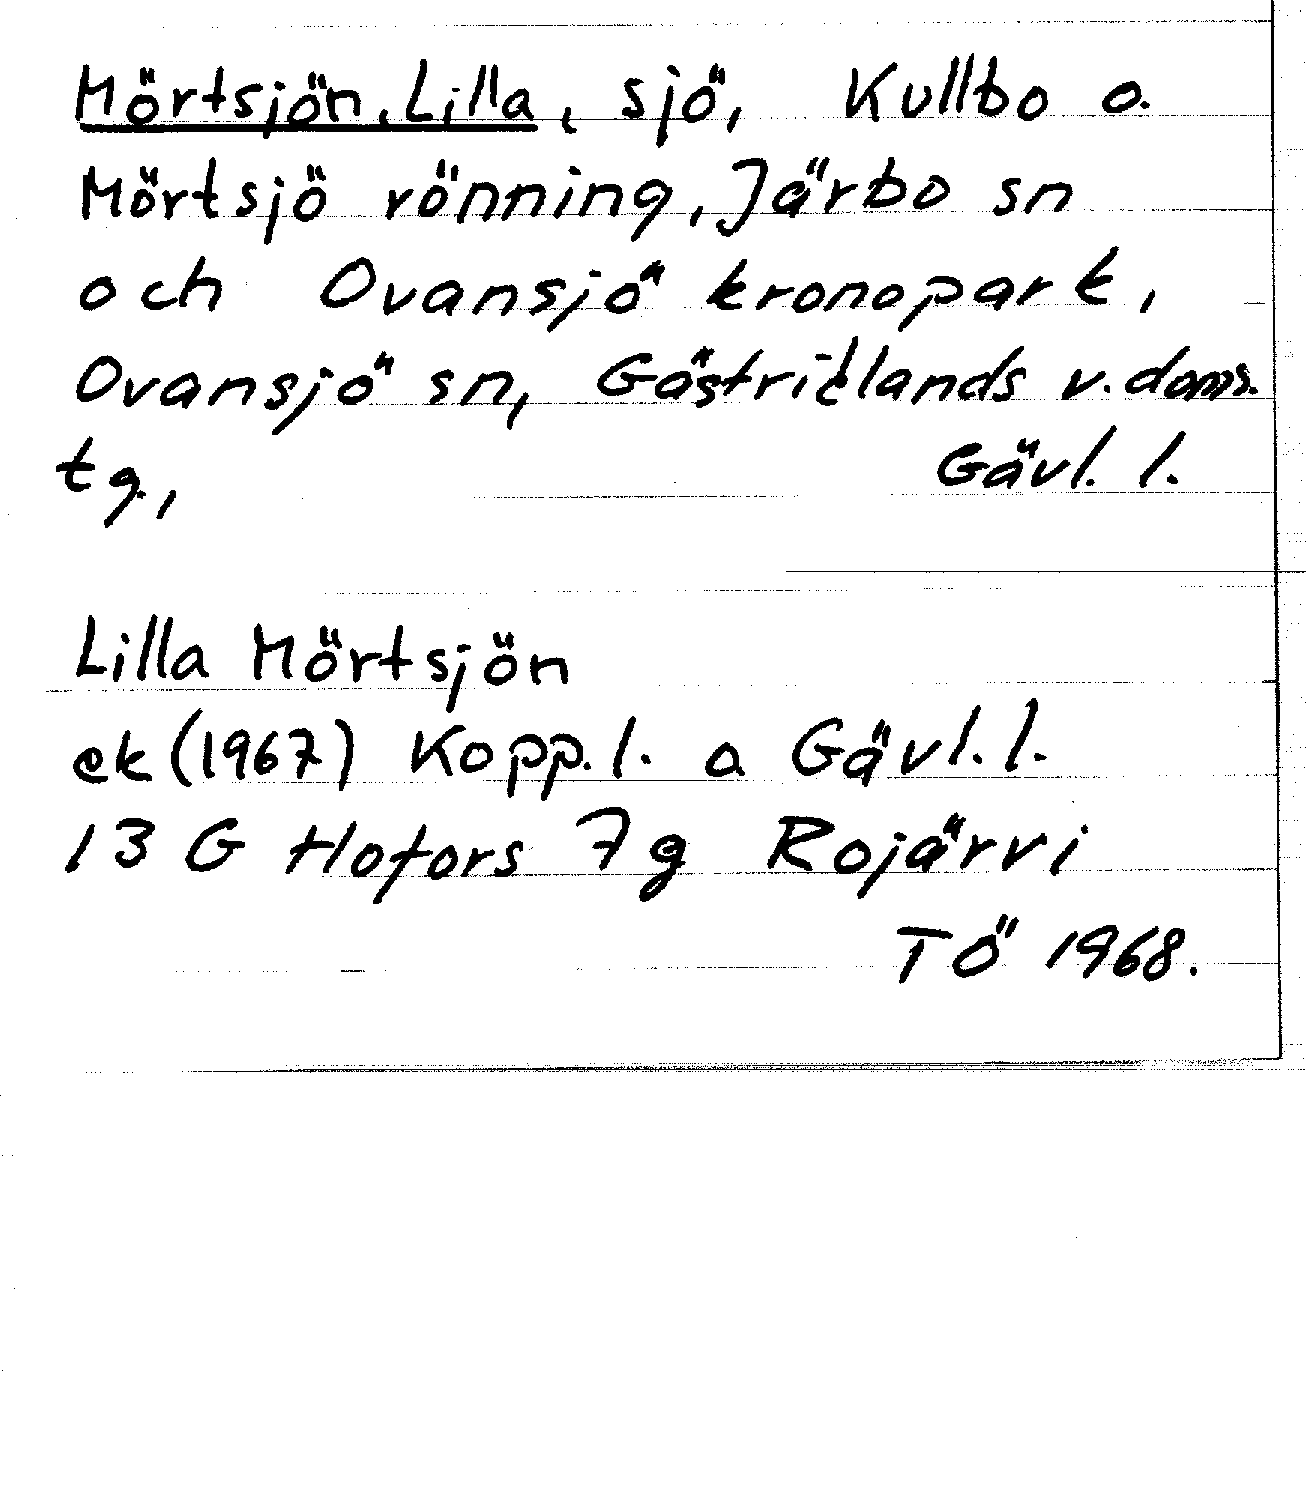 Mörtsjön, Lilla, sjö, Kullbo o.
Mörtsjö rönning, Järbo sn
och Ovansjö kronopark,
Ovansjö sn, Gästriklands v. doms.
tg, Gävl. l.
Lilla Mörtsjön
ek (1967) Kopp. l. o Gävl. l.
13 G Hofors 7 g Rojärvi
TÖ 1968.